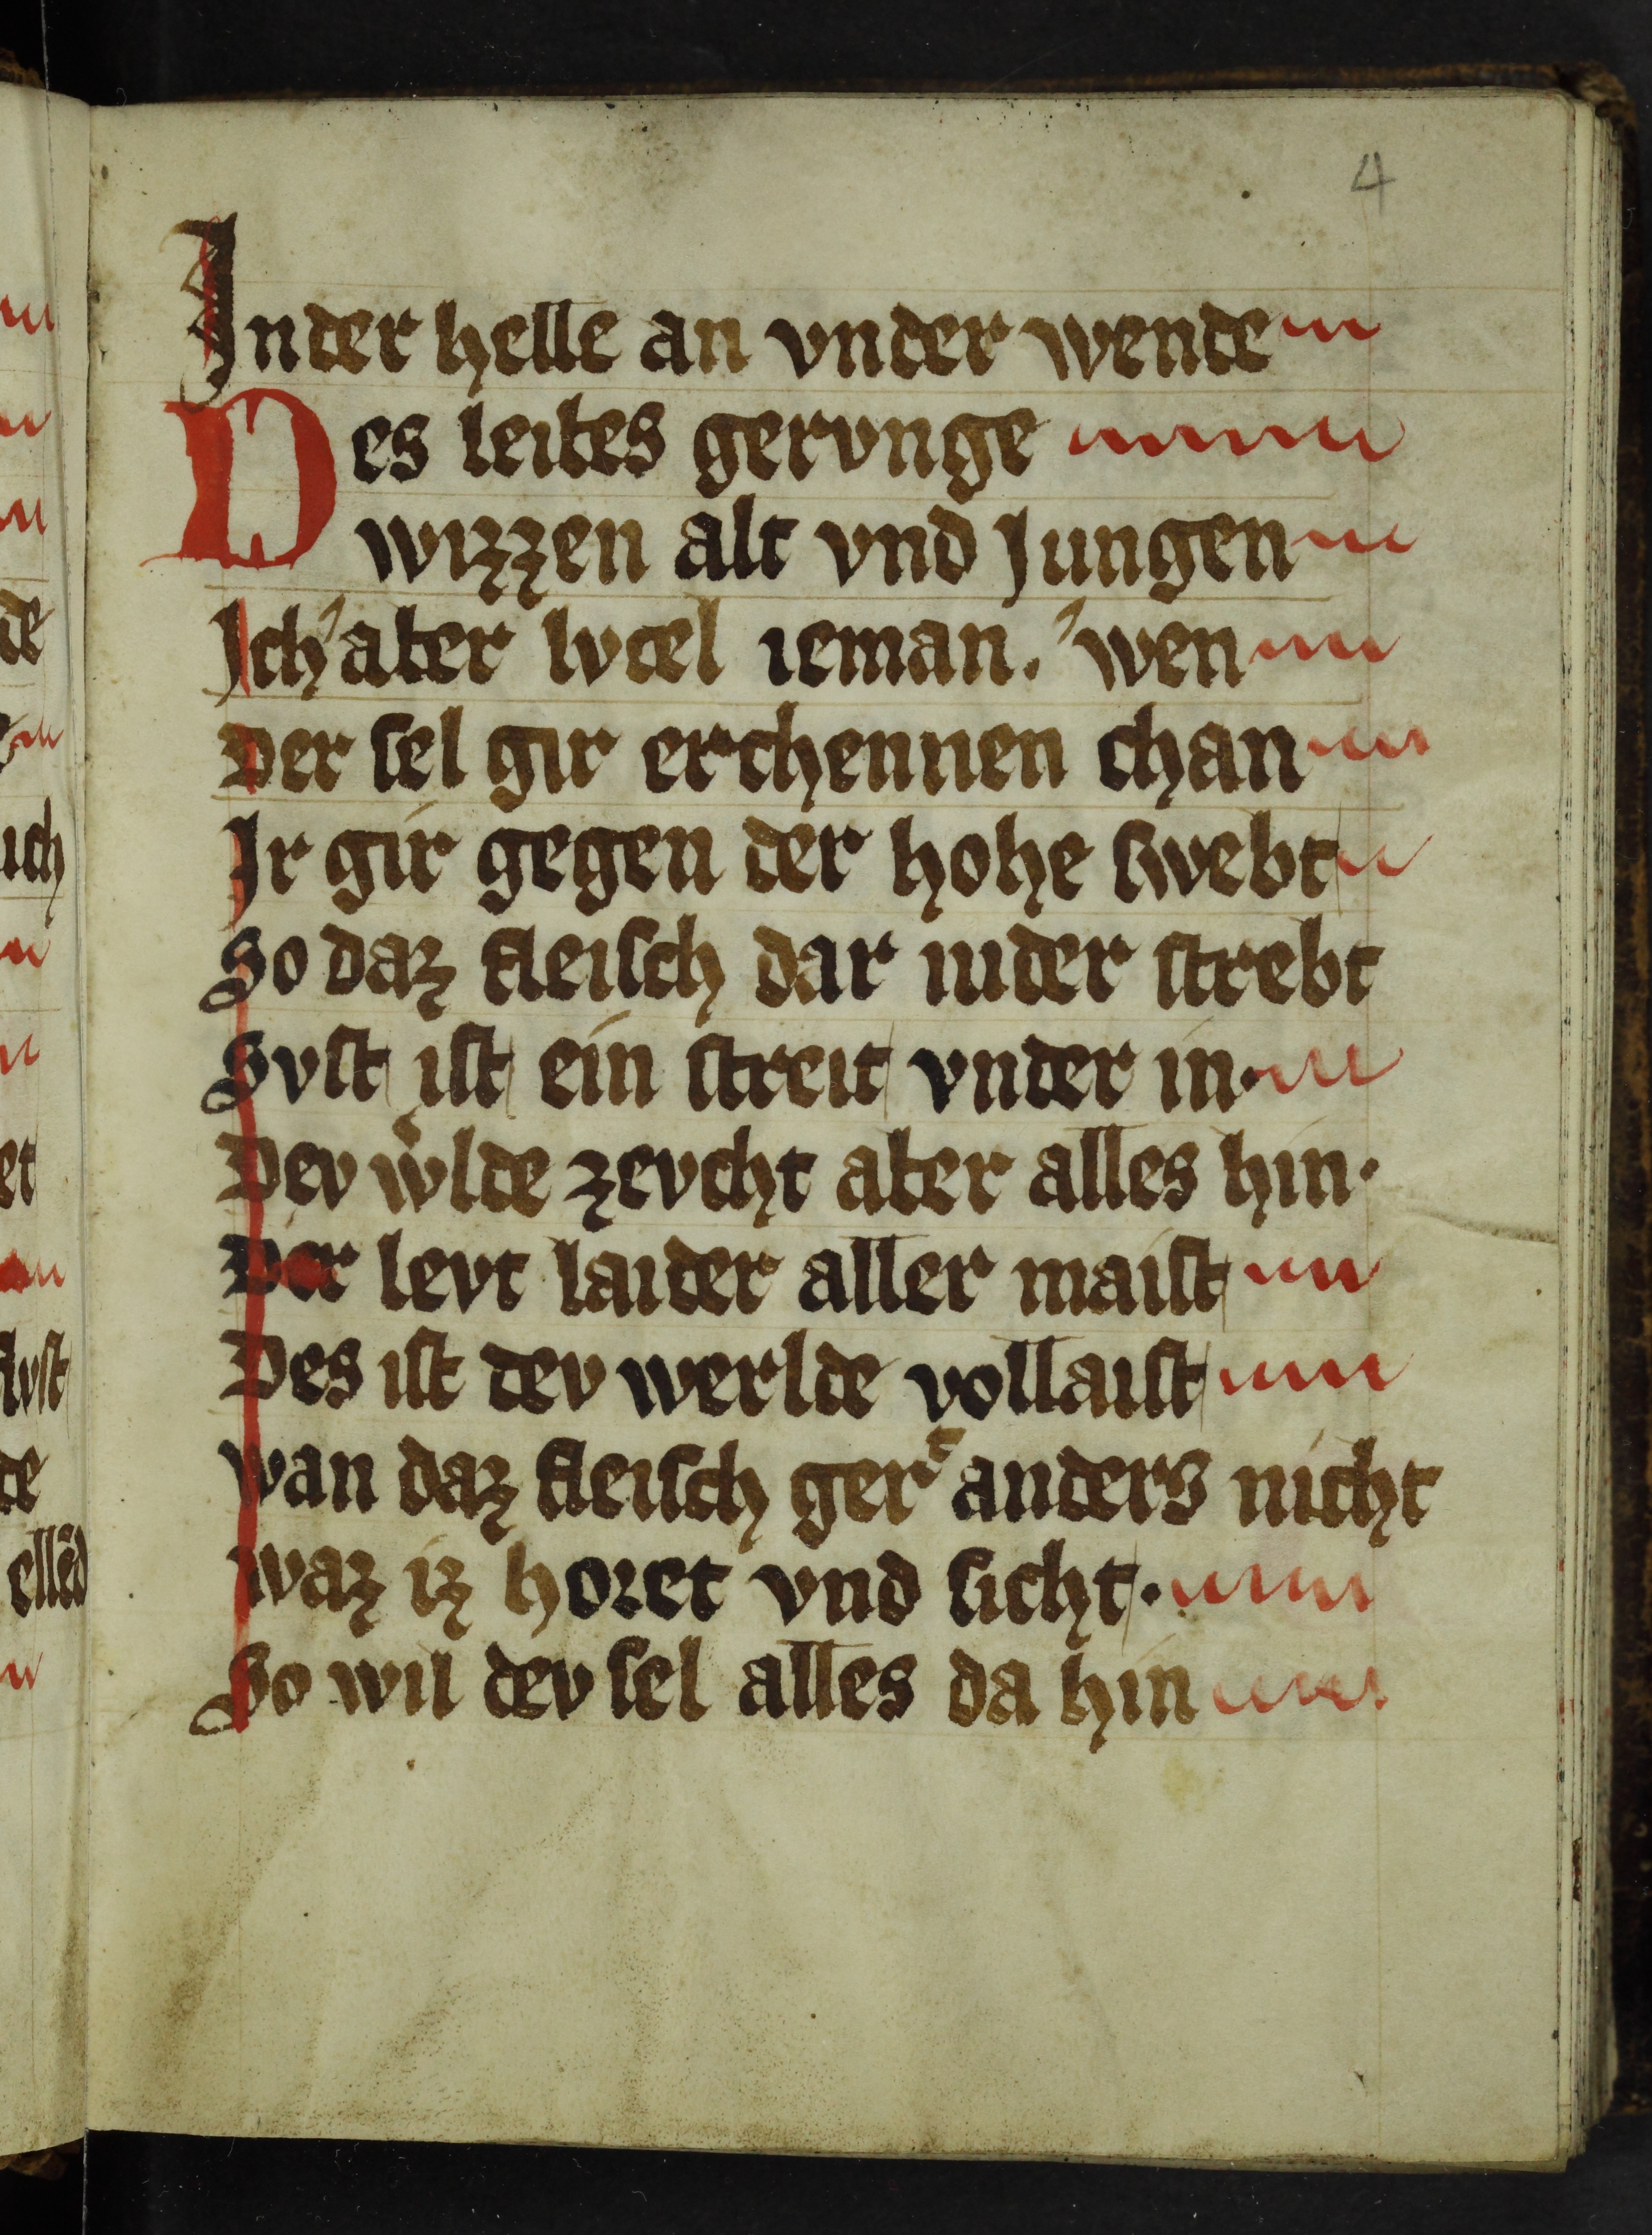 4
In der helle an vnder wende
Des leibes gervnge
wizzen alt vnd Jungen
Ich aber lvcel ieman. wen
Der sel gir erchennen chan
Ir gir gegen der hohe swebt
So daz fleisch dar nider strebt
Svst ist ein streit vnder in.
Dev wͦlde zevcht aber alles hin.
Der levt laider aller maist
Des ist dev werlde vollaist
wan daz fleisch gerͤ anders nicht
waz iz horet vnd sicht.
So wil dev sel alles da hin